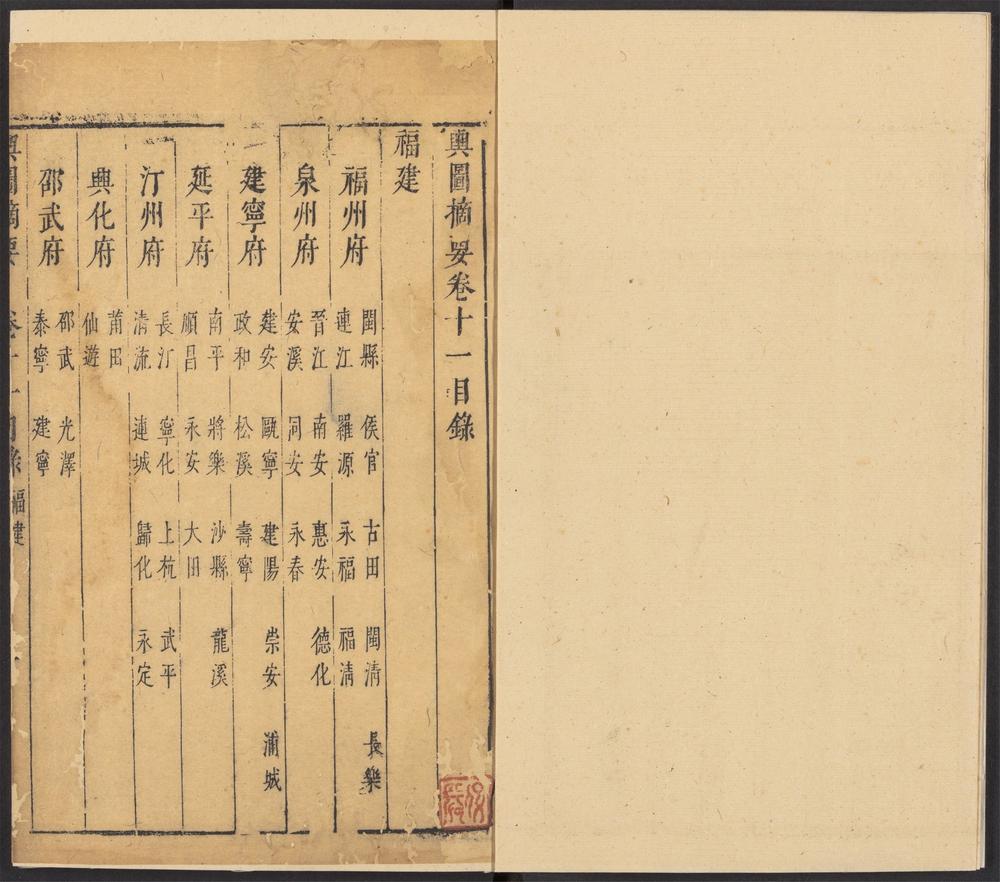 輿圖摘要卷十一目錄
福建
福州府
閩縣 侯官 古田 閩清 長樂
連江 羅源 永福 福清
泉州府
晉江 南安 惠安 德化
安溪 同安 永春
建寧府
建安 甌寧 建陽 崇安 浦城
政和 松溪 壽寧
延平府
南平 將樂 沙縣 龍溪
順昌 永安 大田
汀州府
長汀 寧化 上杭 武平
清流 連城 歸化 永定
興化府
莆田
仙遊
邵武府
邵武 光澤
泰寧 建寧
輿圖摘要 卷十一目錄 福建